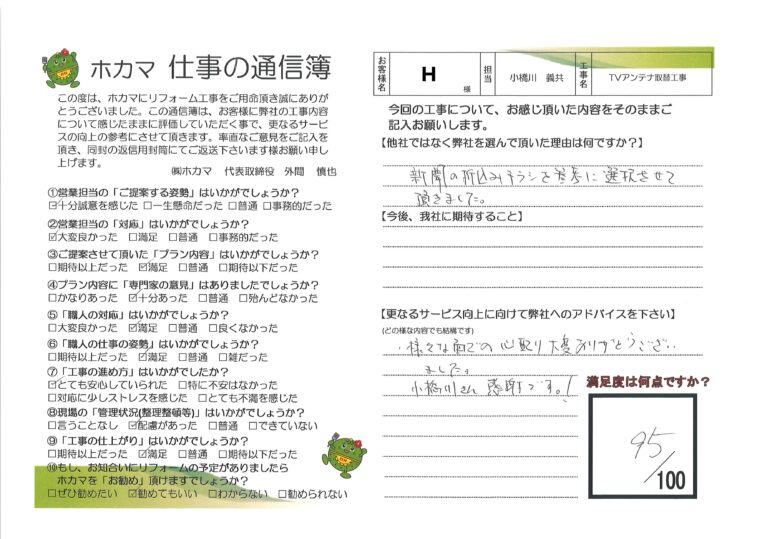 ホカマ 仕事の通信簿
この度は、ホカマにリフォーム工事をご用命頂き誠にありが
とうございました。この通信簿は、お客様に弊社の工事内容
について感じたままに評価していただく事で、更なるサービ
スの向上の参考にさせて頂きます。率直なご意見をご記入を
頂き、同封の返信用封筒にてご返送下さいます様お願い申し
上げます。
㈱ホカマ 代表取締役 外間 慎也
①営業担当の「ご提案する姿勢」はいかがでしょうか?
☑十分誠意を感じた □一生懸命だった □普通 □事務的だった
②営業担当の「対応」はいかがでしょうか?
☑大変良かった □満足 □普通 □事務的だった
③ご提案させて頂いた「プラン内容」はいかがでしょうか?
□期待以上だった ☑満足 □普通 □期待以下だった
④プラン内容に「専門家の意見」はありましたでしょうか?
□かなりあった ☑十分あった □普通 □殆んどなかった
⑤「職人の対応」はいかがでしょうか?
□大変良かった ☑満足 □普通 □良くなかった
⑥「職人の仕事の姿勢」はいかがでしょうか?
□期待以上だった ☑満足 □普通 □雑だった
⑦「工事の進め方」はいかがでしたか?
☑とても安心していられた □特に不安はなかった
□対応に少しストレスを感じた □とても不満を感じた
⑧現場の「管理状況(整理整頓等)」はいかがでしょうか?
□言うことなし ☑配慮があった □普通 □できていない
⑨「工事の仕上がり」はいかがでしょうか?
□期待以上だった ☑満足 □普通 □期待以下だった
⑩もし、お知合いにリフォームの予定がありましたら
ホカマを「お勧め」頂けますでしょうか?
□ぜひ勧めたい ☑勧めてもいい □わからない □勧められない
お客様名 H 様 担当 小橋川 義共 工事名 TVアンテナ取替工事
今回の工事について、お感じ頂いた内容をそのままご
記入お願いします。
【他社ではなく弊社を選んで頂いた理由は何ですか?】
新聞の折込みチラシを参考に選択させて
頂きました。
【今後、我社に期待すること】
【更なるサービス向上に向けて弊社へのアドバイスを下さい】
(どの様な内容でも結構です)
・様々な面での心配り大変ありがとうござい
ました。
小橋川さん感謝です。!
満足度は何点ですか?
95/100